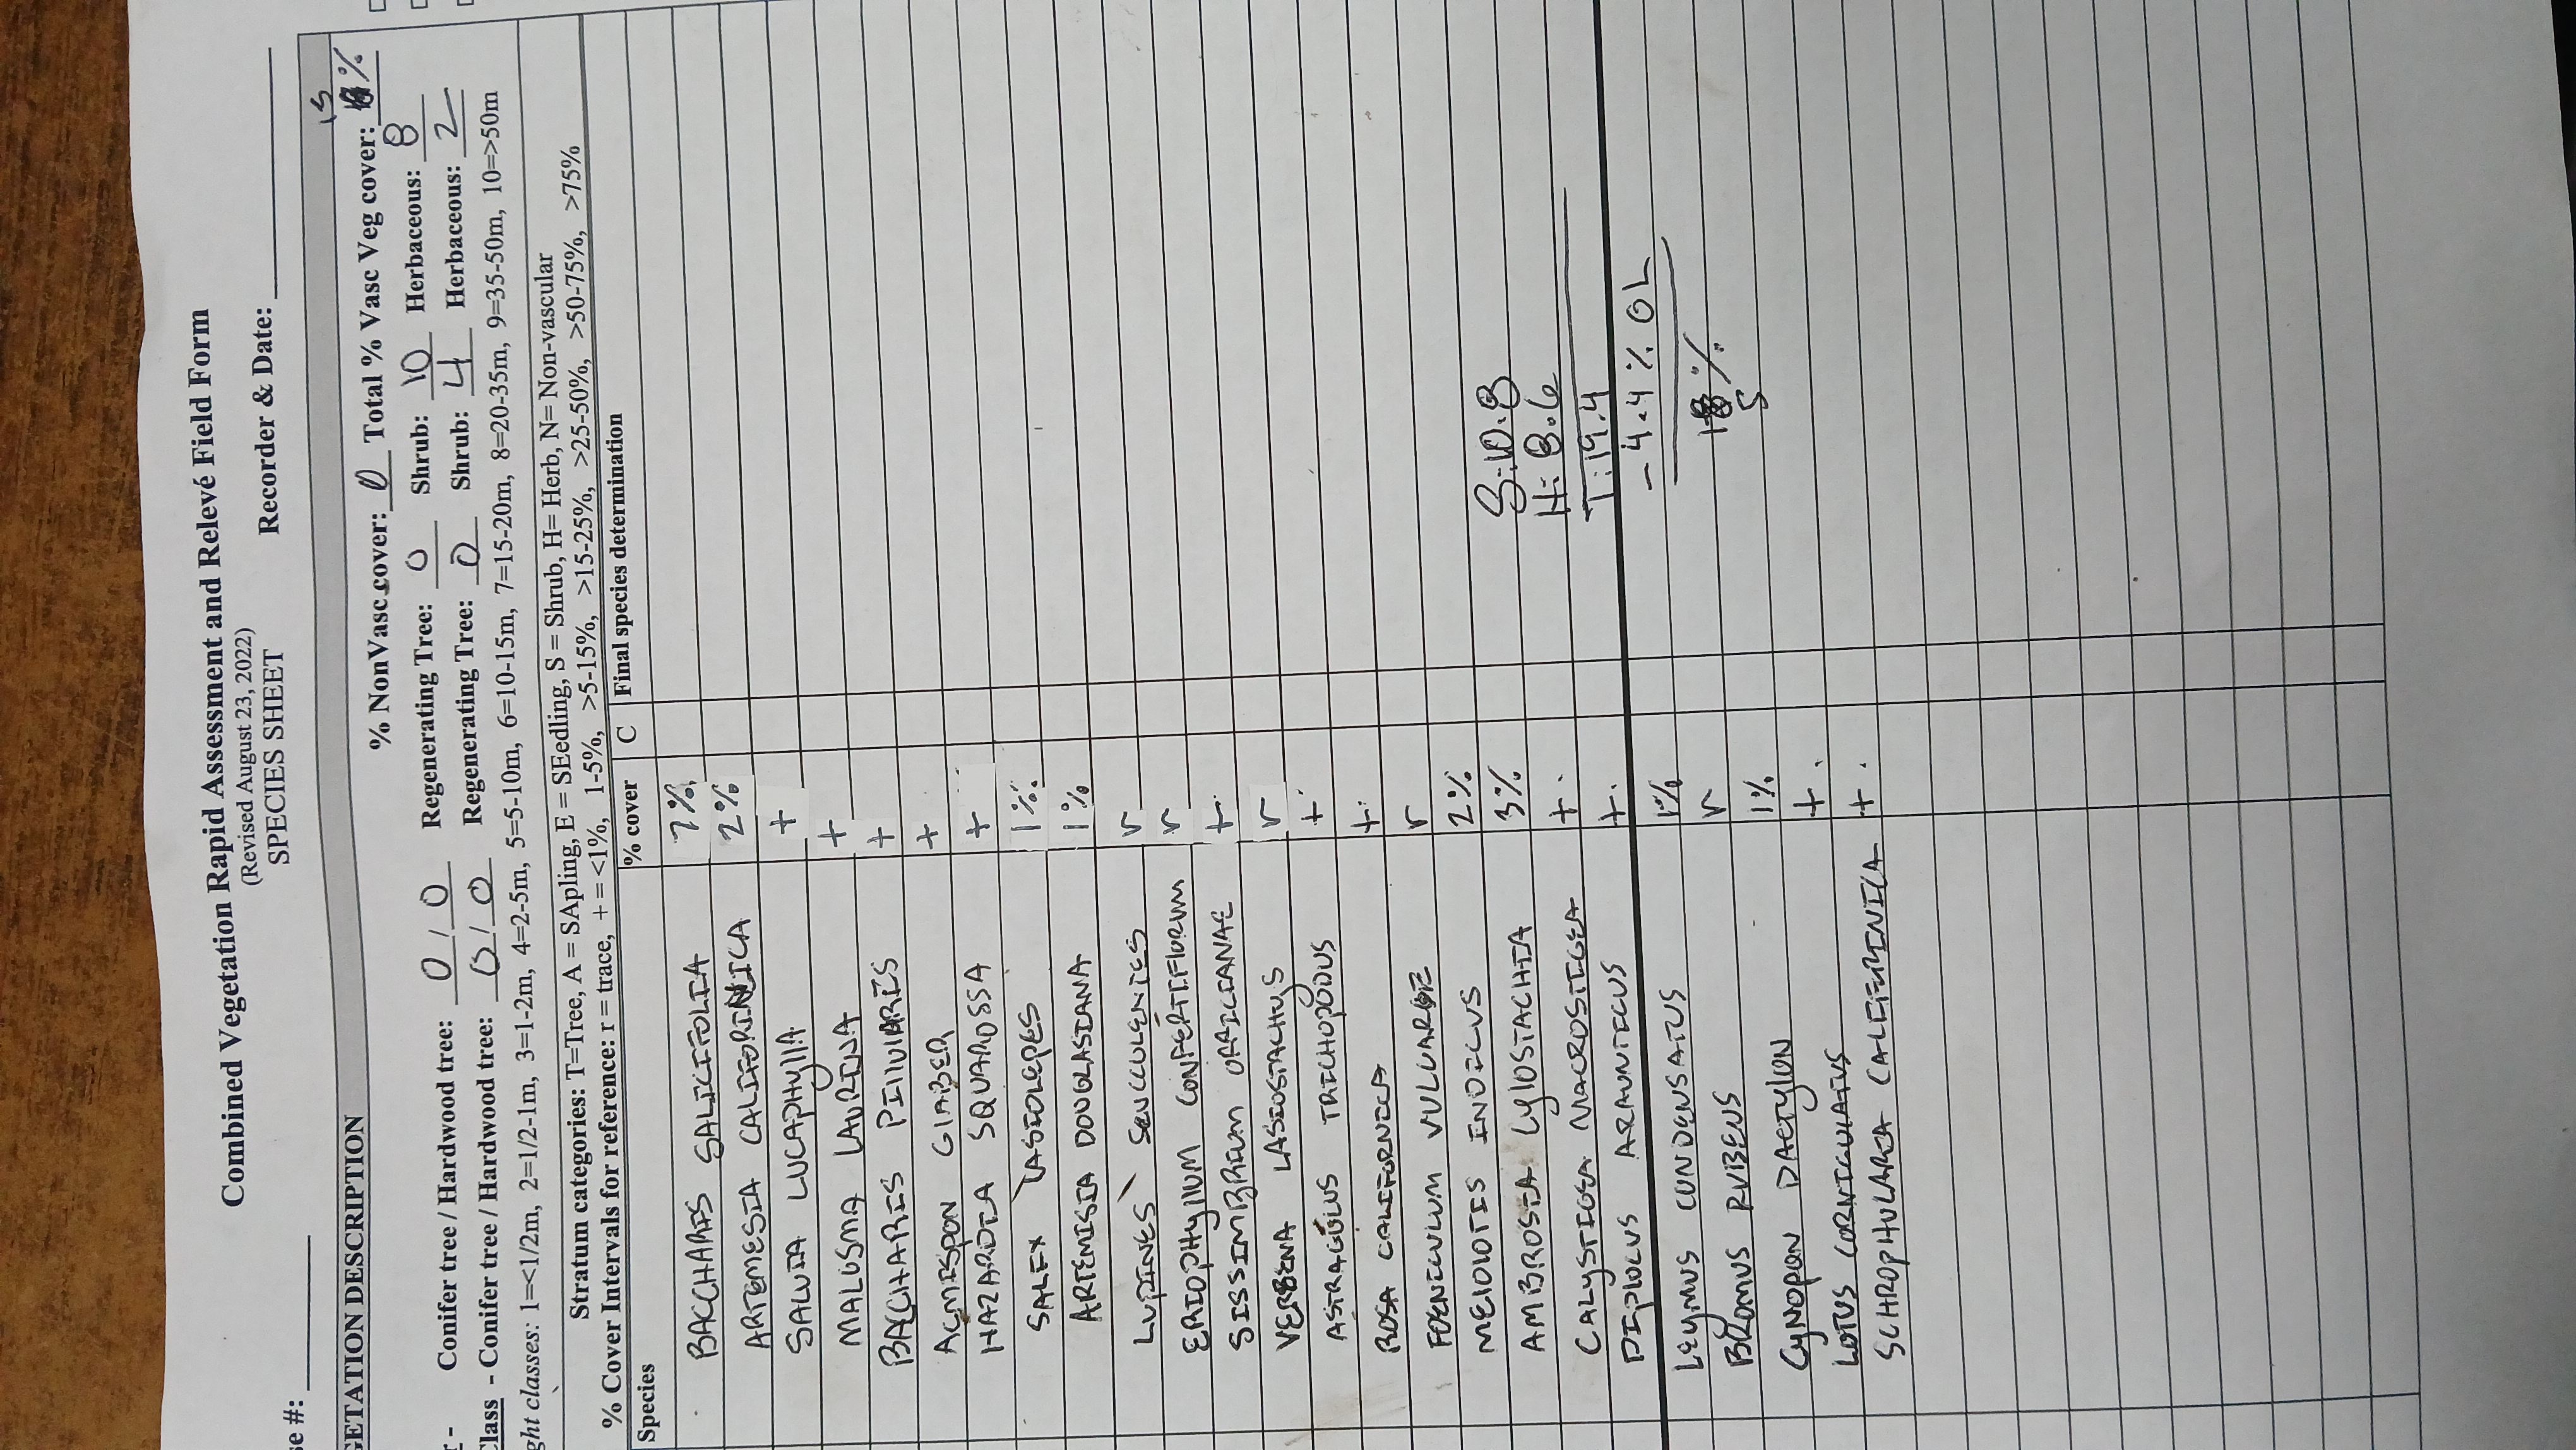 Combined Vegetation Rapid Assessment and Relevé Field Form
(Revised August 23, 2022)
SPECIES SHEET
se #: Recorder & Date:
GETATION DESCRIPTION
% NonVasc cover: 0 Total % Vasc Veg cover: 15 %
Conifer tree / Hardwood tree: 0 / 0 Regenerating Tree: 0 Shrub: 10 Herbaceous: 8
Class - Conifer tree / Hardwood tree: 0 / 0 Regenerating Tree: 0 Shrub: 4 Herbaceous: 2
ght classes: 1=<1/2m, 2=1/2-1m, 3=1-2m, 4=2-5m, 5=5-10m, 6=10-15m, 7=15-20m, 8=20-35m, 9=35-50m, 10=>50m
Stratum categories: T=Tree, A = SApling, E = SEedling, S = Shrub, H= Herb, N= Non-vascular
% Cover Intervals for reference: r = trace, + = <1%, 1-5%, >5-15%, >15-25%, >25-50%, >50-75%, >75%
Species % cover C Final species determination
BACCHARIS SALICIFOLIA 7%
ARTEMESIA CALIFORINICA 2%
SALVIA LUCAPHYLLA +
MALOSMA LAURINA +
BACCHARIS PILLULARIS +
ACMISPON GLABER +
HAZARDIA SQUAROSSA +
SALIX LASIOLEPES 1%
ARTEMISIA DOUGLASIANA 1%
LUPINES SUCCULENTES r
ERIOPHYLLUM CONFERTIFLORUM r
SISSIMBRIUM ORFICIANAE +
VERBENA LASIOSTACHYS r
ASTRAGULUS TRICHOPODUS +
ROSA CALIFORNICA +
FOENICULUM VULUARGE r
MELOLOTIS INDICUS 2%
AMBROSIA LYLOSTACHIA 3% S: 10.8
CALYSTIGEA MACROSTIGEA + H: 8.6
DIPLOCUS ARAUNTICUS + T: 19.4
LEYMUS CONDENSATUS 1% - 4.4 % OL
BROMUS RUBENS r 15 %
CYNOPON DACTYLON 1%
LOTUS CORNICULATUS +
SCHROPHULARIA CALIFERINICA +